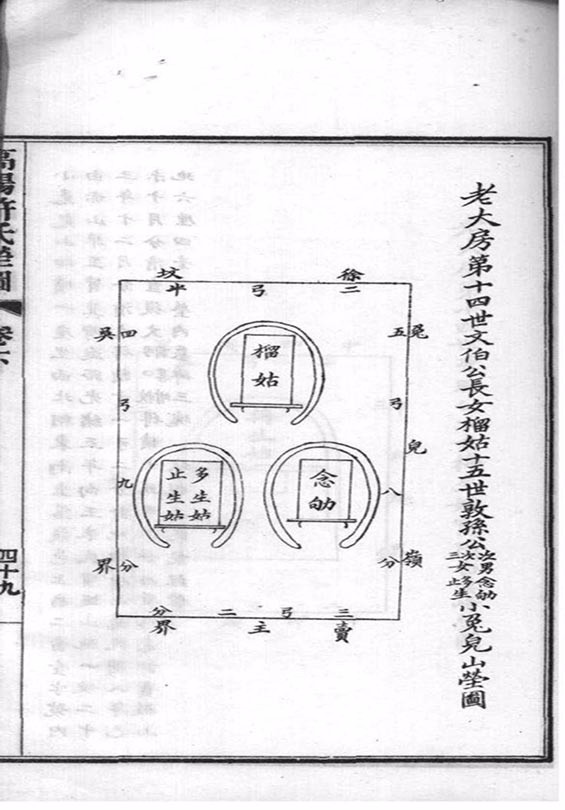 老大房第十四世文伯公長女榴姑十五世敦孫公次男念劬次三女多止生小兔兒山塋圖
徐坟
二弓半
兔兒嶺
五弓八分
榴姑
念劬
多生姑
止生姑
吳界
四弓九分
賣主界
三弓二分
高陽許氏塋圖
卷六
四十九